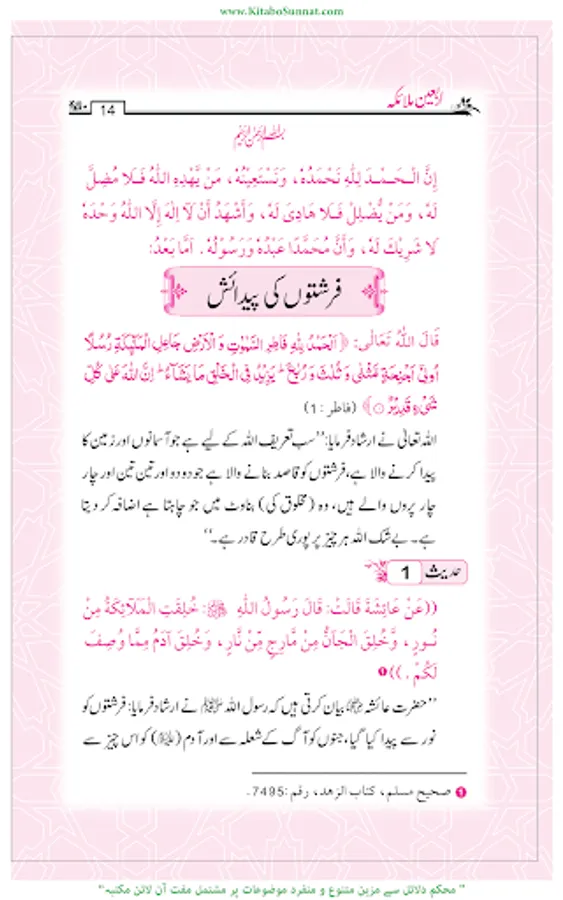 www.KitaboSunnat.com
اربعین ملائکہ
14
إِنَّ الْحَمْدَ لِلّٰهِ نَحْمَدُهُ، وَنَسْتَعِيْنُهُ، مَنْ يَّهْدِهِ اللّٰهُ فَلَا مُضِلَّ
لَهُ، وَمَنْ يُّضْلِلْ فَلَا هَادِىَ لَهُ، وَأَشْهَدُ أَنْ لَا إِلٰهَ إِلَّا اللّٰهُ وَحْدَهُ
لَا شَرِيْكَ لَهُ، وَأَنَّ مُحَمَّدًا عَبْدُهُ وَرَسُوْلُهُ. اَمَّا بَعْدُ:
فرشتوں کی پیدائش
قَالَ اللّٰهُ تَعَالٰى: ﴿اَلْحَمْدُ لِلّٰهِ فَاطِرِ السَّمٰوٰتِ وَ الْاَرْضِ جَاعِلِ الْمَلٰٓىِٕكَةِ رُسُلًا
اُولِيْۤ اَجْنِحَةٍ مَّثْنٰى وَ ثُلٰثَ وَ رُبٰعَ ؕ يَزِيْدُ فِي الْخَلْقِ مَا يَشَآءُ ؕ اِنَّ اللّٰهَ عَلٰى كُلِّ
شَيْءٍ قَدِيْرٌ ۝﴾ (فاطر : 1)
اللہ تعالیٰ نے ارشاد فرمایا: ”سب تعریف اللہ کے لیے ہے جو آسمانوں اور زمین کا
پیدا کرنے والا ہے، فرشتوں کو قاصد بنانے والا ہے جو دو دو اور تین تین اور چار
چار پروں والے ہیں، وہ (مخلوق کی) بناوٹ میں جو چاہتا ہے اضافہ کر دیتا
ہے۔ بے شک اللہ ہر چیز پر پوری طرح قادر ہے۔“
حدیث 1
((عَنْ عَائِشَةَ قَالَتْ: قَالَ رَسُوْلُ اللّٰهِ ﷺ: خُلِقَتِ الْمَلَائِكَةُ مِنْ
نُوْرٍ، وَّخُلِقَ الْجَآنُّ مِنْ مَّارِجٍ مِّنْ نَّارٍ، وَخُلِقَ آدَمُ مِمَّا وُصِفَ
لَكُمْ.))❶
”حضرت عائشہ رضی اللہ عنہا بیان کرتی ہیں کہ رسول اللہ ﷺ نے ارشاد فرمایا: فرشتوں کو
نور سے پیدا کیا گیا، جنوں کو آگ کے شعلہ سے اور آدم (علیہ السلام) کو اس چیز سے
❶ صحیح مسلم، کتاب الزهد، رقم: 7495.
"محکم دلائل سے مزین متنوع و منفرد موضوعات پر مشتمل مفت آن لائن مکتبہ"